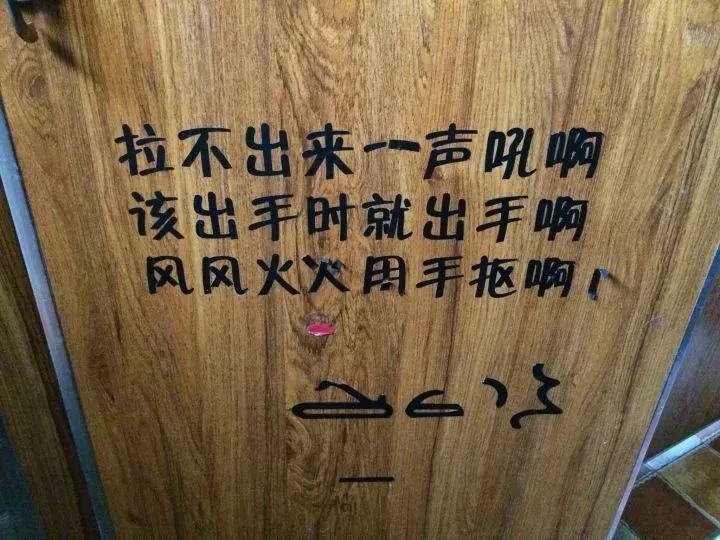 拉不出来一声吼啊
该出手时就出手啊
风风火火用手抠啊,